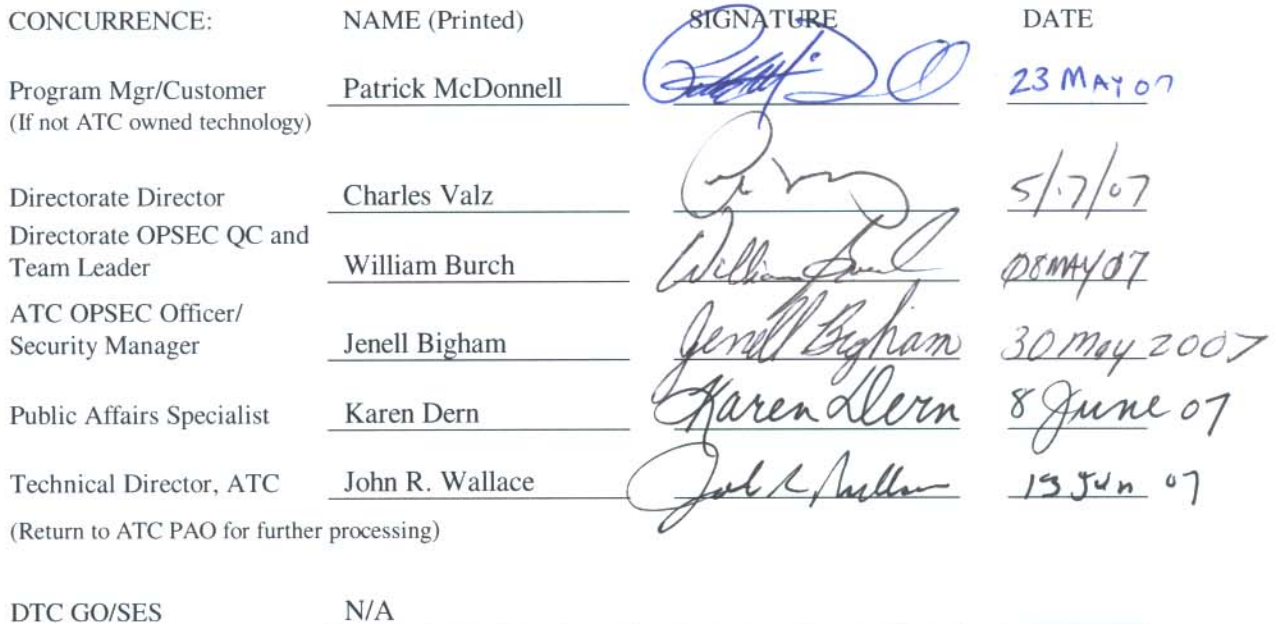 CONCURRENCE: NAME (Printed) SIGNATURE DATE
Program Mgr/Customer Patrick McDonnell 23 MAY 07
(If not ATC owned technology)
Directorate Director Charles Valz 5/17/07
Directorate OPSEC QC and
Team Leader William Burch William Burch 08 MAY 07
ATC OPSEC Officer/
Security Manager Jenell Bigham Jenell Bigham 30 May 2007
Public Affairs Specialist Karen Dern Karen Dern 8 June 07
Technical Director, ATC John R. Wallace Jun 07
(Return to ATC PAO for further processing)
DTC GO/SES N/A